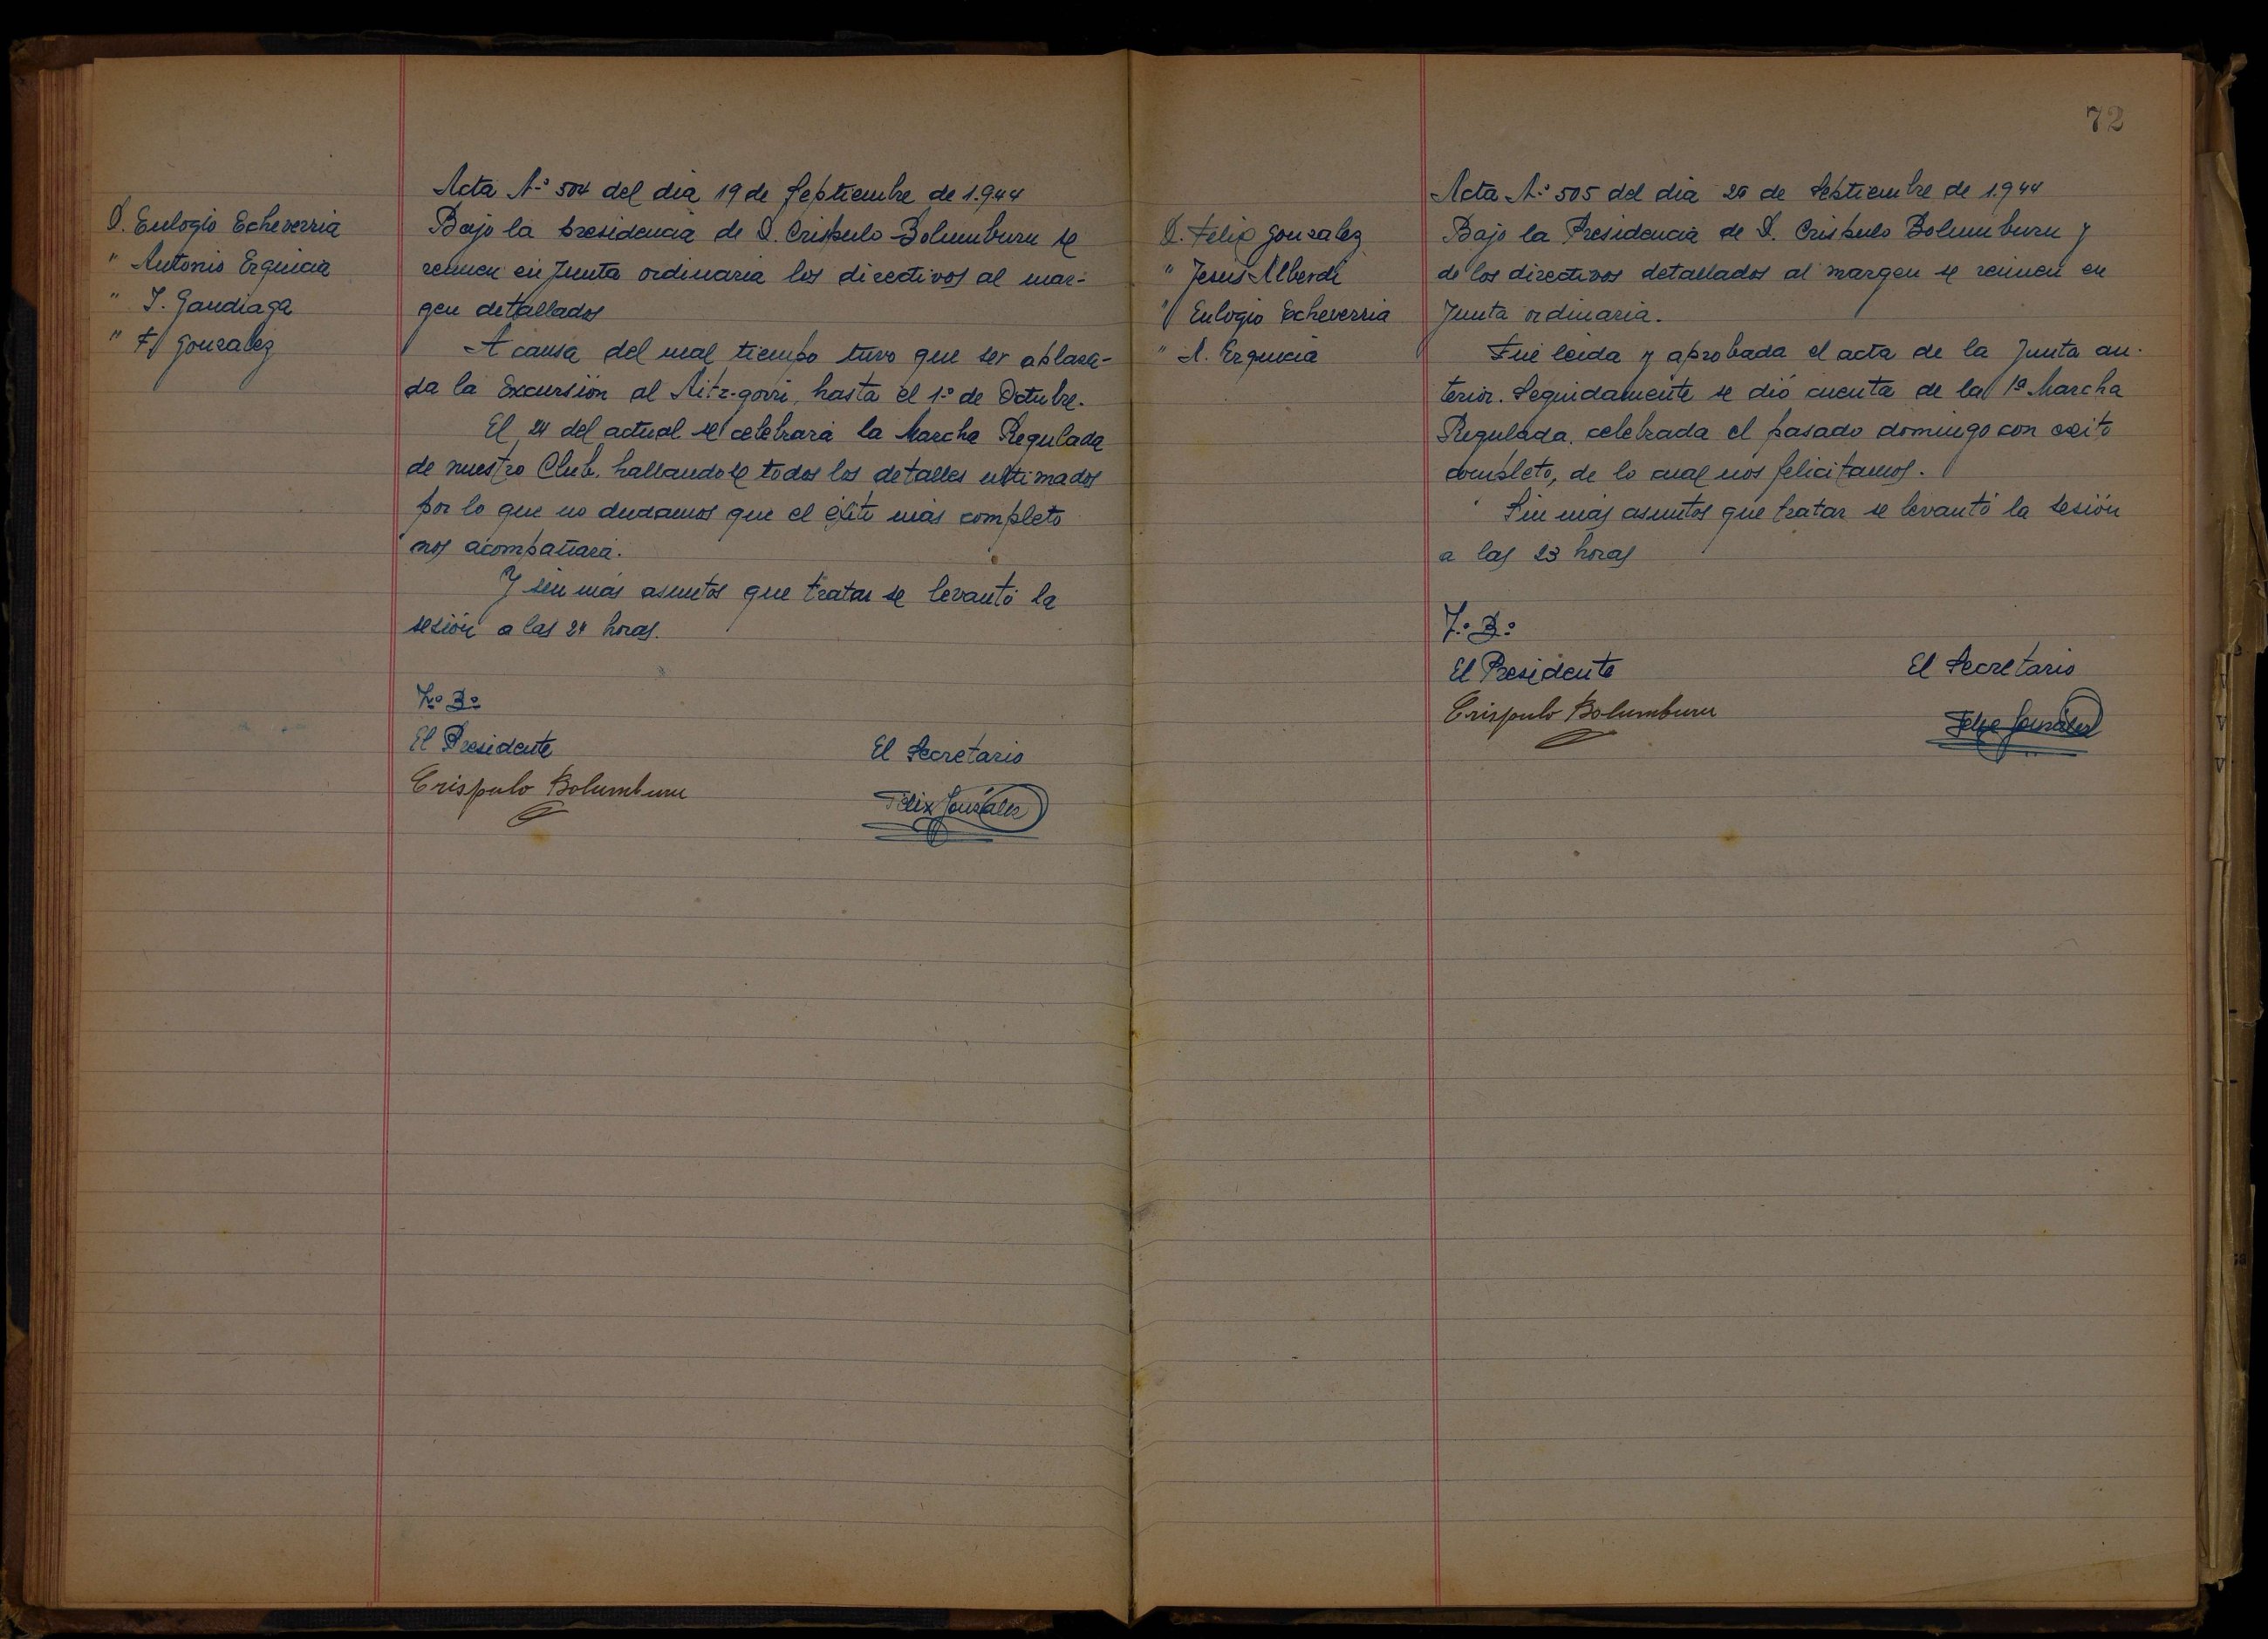 D. Eulogio Echeverria
" Antonio Erguicia
" J. Gandiaga
" F. Gonzalez
Acta Nº 504 del dia 19 de Septiembre de 1.944
Bajo la presidencia de D. Crispulo Bolumburu se
reunen en Junta ordinaria los directivos al mar-
gen detallados
A causa del mal tiempo tuvo que ser aplaza-
da la Excursión al Aitz-gorri, hasta el 1º de Octubre.
El 24 del actual se celebrará la Marcha Regulada
de nuestro Club. hallandose todos los detalles ultimados
por lo que no dudamos que el éxito más completo
nos acompañará.
Y sin más asuntos que tratar se levantó la
sesión a las 24 horas.
Vº Bº
El Presidente
El Secretario
Crispulo Bolumburu
Felix Gonzalez
72
D. Felix Gonzalez
" Jesus Alberdi
" Eulogio Echeverria
" A. Erguicia
Acta Nº 505 del dia 26 de Septiembre de 1.944
Bajo la Presidencia de D. Crispulo Bolumburu y
de los directivos detallados al margen se reunen en
Junta ordinaria.
Fué leida y aprobada el acta de la Junta an-
terior. Seguidamente se dió cuenta de la 1ª Marcha
Regulada, celebrada el pasado domingo con exito
completo, de lo cual nos felicitamos.
Sin más asuntos que tratar se levantó la sesión
a las 23 horas
Vº Bº
El Presidente
El Secretario
Crispulo Bolumburu
Felix Gonzalez